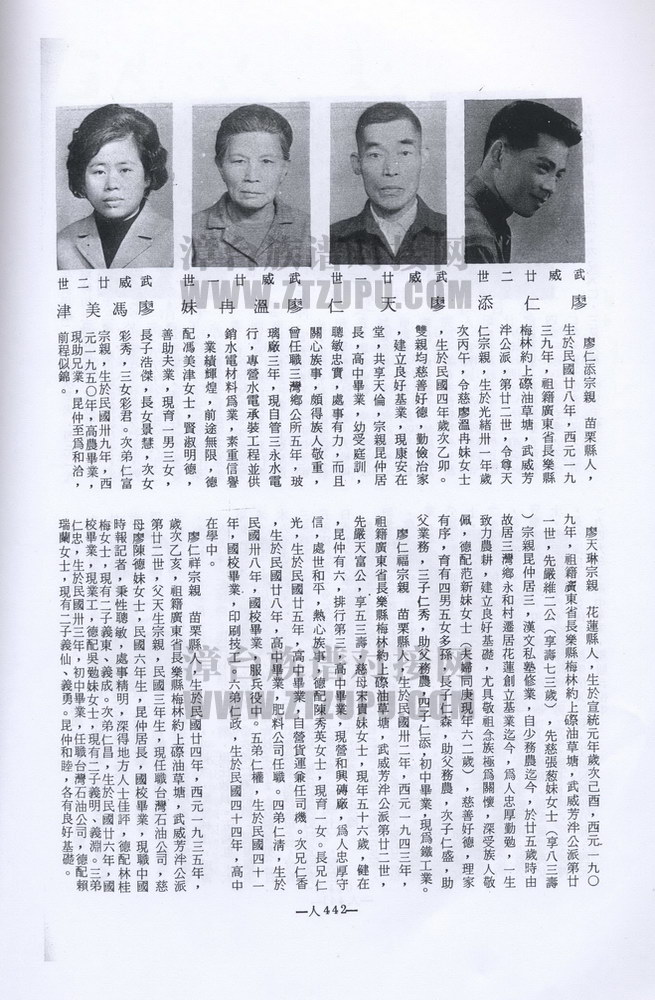 武威廿二世　廖仁添
武威廿一世　廖天仁
武威廿世　廖溫冉妹
武威廿二世　廖馮美津
廖仁添宗親　苗栗縣人，
生於民國廿八年，西元一九
三九年，祖籍廣東省長樂縣
梅林約上磜油草塘，武威芳
泮公派，第廿二世，令尊天
仁宗親，生於光緒卅一年歲
次丙午，令慈廖溫冉妹女士
，生於民國四年歲次乙卯。
雙親均慈善好德，勤儉治家
，建立良好基業，現康安在
堂，共享天倫，宗親昆仲居
長，高中畢業，幼受庭訓，
聰敏忠實，處事有力，而且
關心族事，頗得族人敬重，
曾任職三灣鄉公所五年，玻
璃廠三年，現自營三永水電
行，專營水電承裝工程並供
銷水電材料爲業，素重信譽
，業績輝煌，前途無限，德
配馮美津女士，賢淑明德，
善助夫業，現育一男三女，
長子浩傑，長女景慧，次女
彩秀，三女彩君。次弟仁富
宗親，生於民國卅九年，西
元一九五〇年，高農畢業，
現助兄業，昆仲至爲和洽，
前程似錦。
廖天琳宗親　花蓮縣人，生於宣統元年歲次己酉，西元一九〇
九年，祖籍廣東省長樂縣梅林約上磜油草塘，武威芳泮公派第廿
一世，先嚴維二公（享壽七三歲），先慈張葱妹女士（享八三壽
）宗親昆仲居三，漢文私塾修業，自少務農迄今，於廿五歲時由
故居三灣鄉永和村遷居花蓮創立基業迄今，爲人忠厚勤勉，一生
致力農耕，建立良好基礎，尤具敬祖念族極爲關懷，深受族人敬
佩，德配范新妹女士（夫婦同庚現年六二歲），慈善好德，理家
有序，育有四男五女多孫，長子仁森，助父務農，次子仁盛，助
父業務，三子仁秀，助父務農，四子仁添，初中畢業，現爲鐵工業。
廖仁福宗親　苗栗縣人，生於民國卅二年，西元一九四三年，
祖籍廣東省長樂縣梅林約上磜油草塘，武威芳泮公派第廿二世，
先嚴天富公，享五三壽，慈母宋貴妹女士，現年五十六歲，健在
，昆仲有六，排行第三，高中畢業，現營和興磚廠，爲人忠厚守
信，處世和平，熱心族事，德配陳秀英女士，現育一女。長兄仁
光，生於民國廿五年，高中畢業，自營貨運兼任司機。次兄仁香
，生於民國廿八年，高中畢業，肥料公司任職。四弟仁清，生於
民國卅八年，國校畢業，服兵役中。五弟仁權，生於民國四十一
年，國校畢業，印刷技工。六弟仁政，生於民國四十四年，高中
在學中。
廖仁祥宗親　苗栗縣人，生於民國廿四年，西元一九三五年，
歲次乙亥，祖籍廣東省長樂縣梅林約上磜油草塘，武威芳泮公派
第廿二世，父天生宗親，民國三年生，現任職台灣石油公司，慈
母廖陳德妹女士，民國六年生，昆仲居長，國校畢業，現職中國
時報記者，秉性聰敏，處事精明，深得地方人士佳評，德配林桂
梅女士，現有二子義東、義成。次弟仁昌，生於民國廿六年，國
校畢業，現業工，德配吳勉妹女士，現有二子義明、義淵。三弟
仁忠，生於民國卅三年，初中畢業，任職台灣石油公司，德配賴
瑞蘭女士，現有二子義仙、義勇。昆仲和睦，各有良好基礎。
—人442—
漳台族谱对接网
WWW.ZTZUPU.COM
漳台族谱对接网
WWW.ZTZUPU.COM